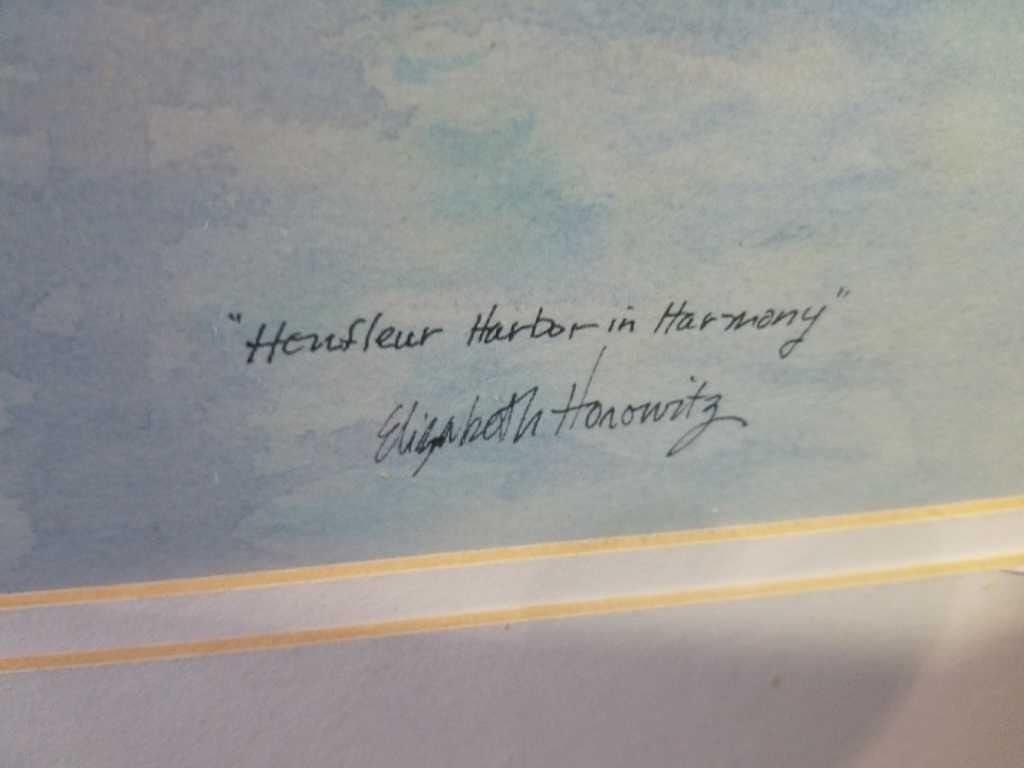 "Honfleur Harbor in Harmony"
Elizabeth Horowitz